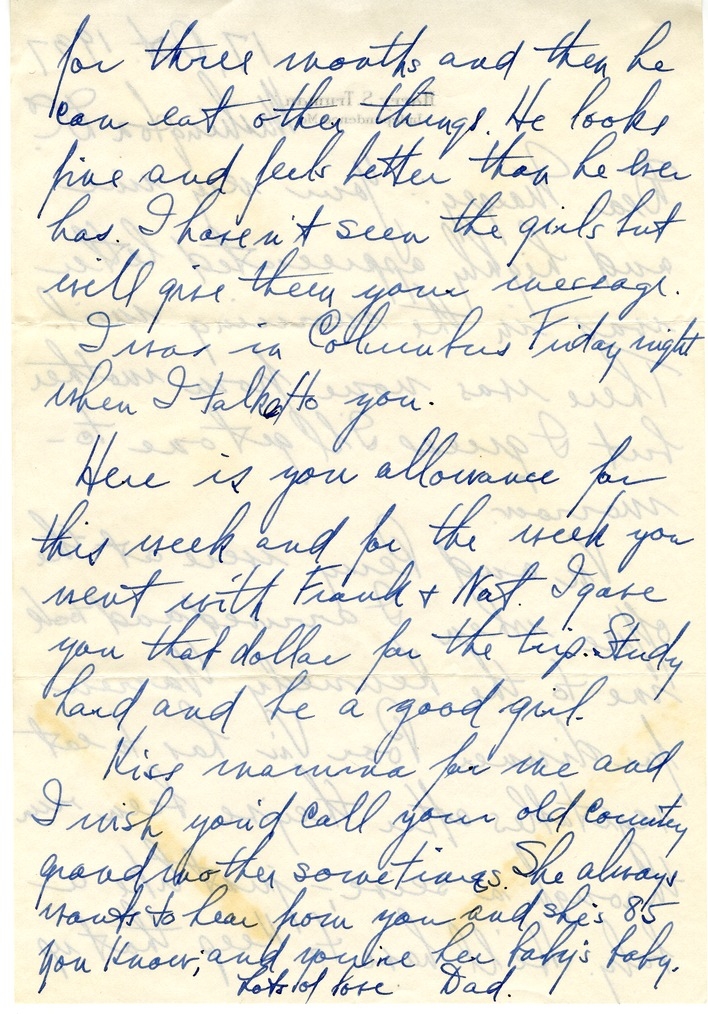 for three months and then he
can eat other things. He looks
fine and feels better than he ever
has. I haven't seen the girls but
will give them your message.
I was in Columbus Friday night
when I talked to you.
Here is you allowance for
this week and for the week you
went with Frank + Nat. I gave
you that dollar for the trip. Study
hard and be a good girl.
Kiss mamma for me and
I wish you'd call your old country
grandmother sometimes. She always
wants to hear from you and she's 85
you know; and you're her baby's baby.
Lots of love Dad.